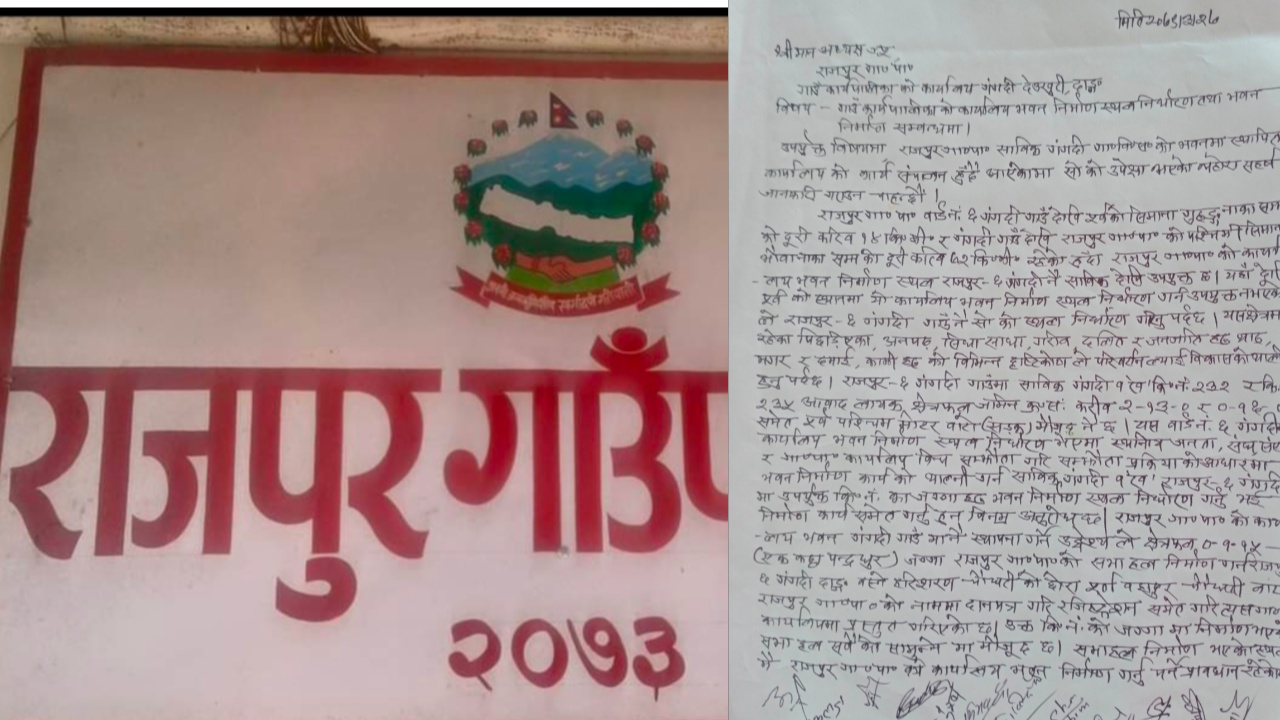 जननी जन्मभूमिश्च स्वर्गादपि गरीयसी
राजपुर गाउँप
२०७३
श्रीमान अध्यक्ष ज्यू
राजपुर गा०पा०
गाउँ कार्यपालिका को कार्यालय गंगदी देउखुरी, दाङ
विषय - गाउँ कार्यपालिका को कार्यालय भवन निर्माण स्थल निर्धारण तथा भवन
निर्माण सम्बन्धमा।
उपर्युक्त विषयमा राजपुर गा०पा० साविक गंगदी गा०वि०स० को भवनमा स्थापित
कार्यालय को कार्य संचालन हुँदै आएकामा सो को उपेक्षा भएको व्यहोरा सहर्ष
जानकारी गराउन चाहन्छौं।
राजपुर गा० पा० वार्ड नं. ६ गंगदी गाउँ देखि पूर्वको सिमाना
को दूरी करिव १४ कि० मी० र गंगदी गाउँ देखि राजपुर गा०पा० को पश्चिम
सम्म को दूरी करिव कि०मी० रहेको हुँदा राजपुर गा०पा० को कार्या
-लय भवन निर्माण स्थल राजपुर-६ गंगदी नै साविक देखि उपयुक्त छ। यहाँ
पूर्व को स्थानमा सो कार्यालय भवन निर्माण स्थल निर्धारण गर्न उपयुक्त नभएक
ले राजपुर-६ गंगदी गाउँ नै सो को स्थल निर्धारण गर्नु पर्दछ। यस क्षेत्रमा
रहेका पिछडिएका, अनपढ, सिधा साधा, गरीव, दलित र जनजाति हरु
मगर र कामी हरु को विभिन्न दृष्टिकोण ले परिवर्तन ल्याई विकास को
हुनु पर्दछ। राजपुर-६ गंगदी गाउँमा साविक गंगदी कि०नं. २३२ र कि
२३५ आवाद लायक क्षेत्रफल जमिन करीव २-१३-० र ०-१८
समेत पूर्व पश्चिम मोटर वाटो (सडक) मौजुद नै छ। यस वार्ड नं. ६ गंगदी
कार्यालय भवन निर्माण स्थल निर्धारण भएमा स्थानिय जनता, संघ
र गा०पा० कार्यालय विच सम्झौता गरि सम्झौता प्रक्रिया को आधारमा
भवन निर्माण कार्य को थालनी गर्न साविक गंगदी राजपुर-६ गंगदि
मा उपर्युक्त कि० नं. का जग्गा हरु भवन निर्माण स्थल निर्धारण गर्नु भई
निर्माण कार्य समेत गर्नु हुन विनम्र अनुरोध छ। राजपुर गा०पा० को कार्या
-लय भवन गंगदी गाउँ मानै स्थापना गर्ने उद्देश्य ले क्षेत्रफल ०-१-१५
(एक कठ्ठा पन्द्र धुर) जग्गा राजपुर गा०पा० को सभा हल निर्माण गर्न राजपु
६ गंगदी दाङ वस्ने हरिशरण चौधरी को छोरा पूर्ण वहादुर चौधरी वाट
राजपुर गा०पा० को नाममा दानपत्र गरि रजिष्ट्रेशन समेत गरि
कार्यालयमा प्रस्तुत गरिएको छ। उक्त कि० नं. को जग्गा मा निर्माण भए
सभा हल सवै को सामुन्ने मा मौजुद छ। सभाहल निर्माण भएको स्थल
मै राजपुर गा०पा० को कार्यालय भवन निर्माण गर्नु पर्ने प्रावधान रहेको